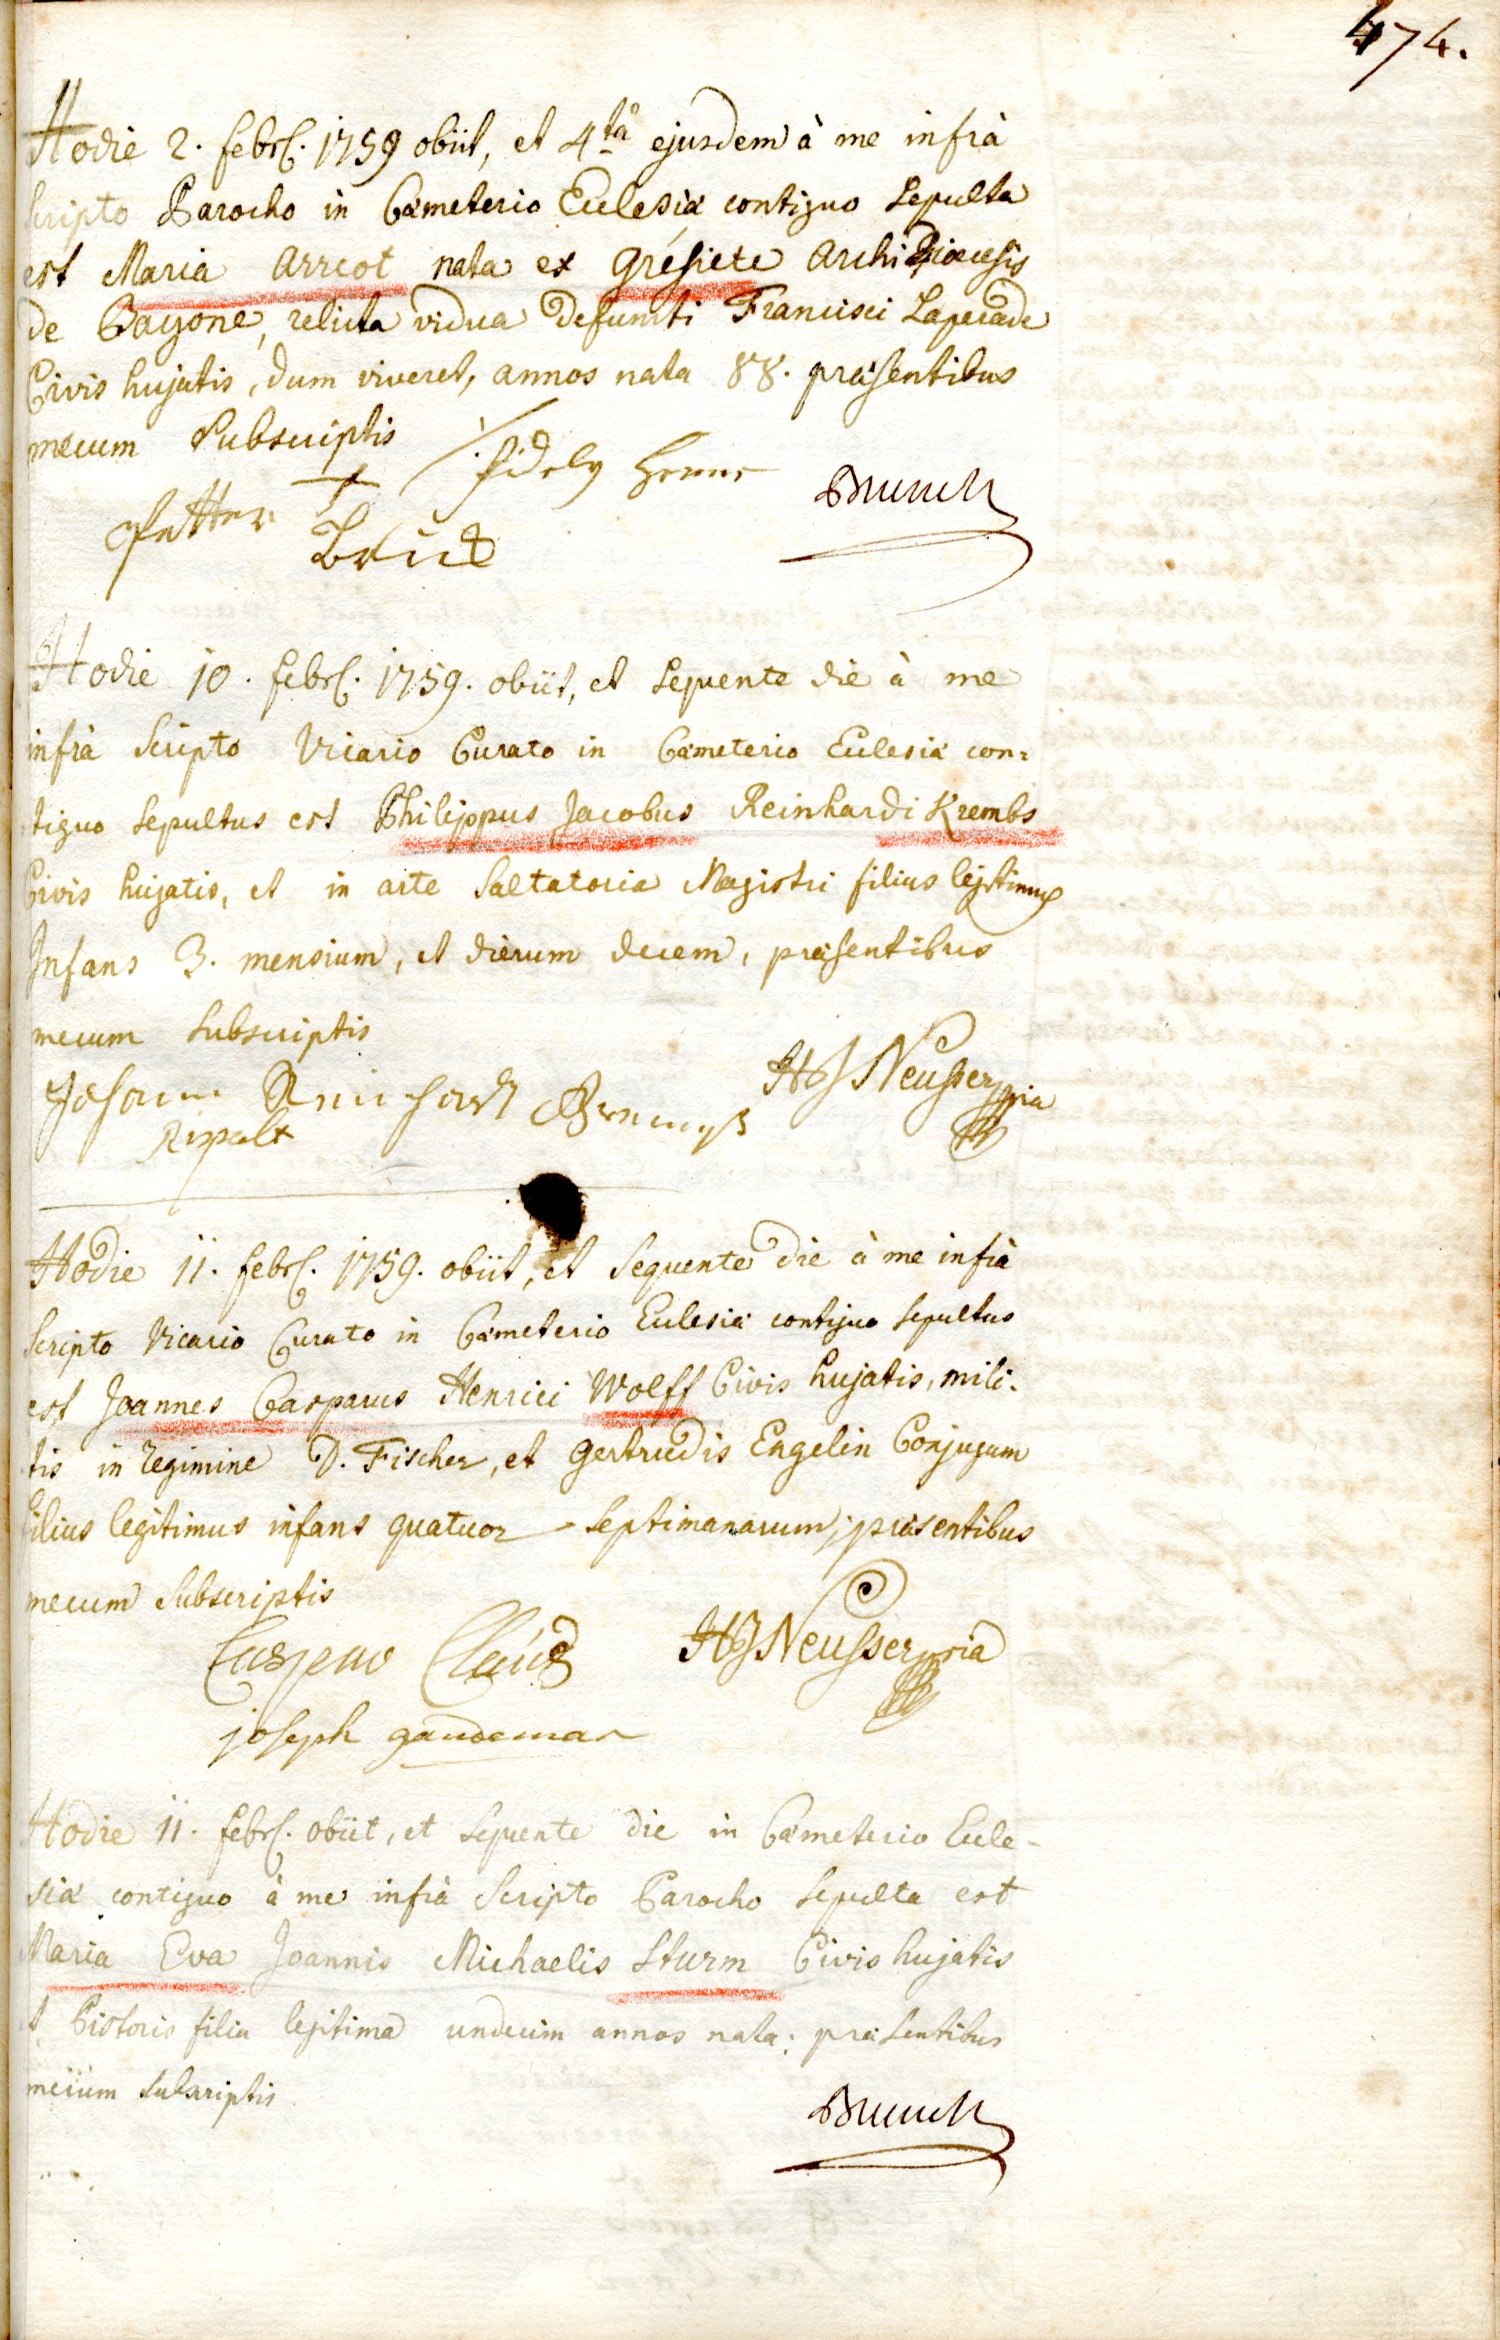 474.
Hodie 2. febr. 1759 obiit, et 4ta ejusdem à me infrà
scripto Parocho in Cœmeterio Ecclesiæ contiguo Sepulta
est Maria Arreot nata ex Grésiete Archidiœcesis
de Bayone, relicta vidua defuncti Francisci Laperade
Civis hujatis, dum viveret, annos nata 88. præsentibus
mecum Subscriptis
fidely
Brunck
Hodie 10. febr. 1759. obiit, et sequente die à me
infrà Scripto Vicario Curato in Cœmeterio Ecclesiæ con=
tiguo Sepultus est Philippus Jacobus Reinhardi Krembs
Civis hujatis, et in arte Saltatoria Magistri filius legitimus
Infans 3. mensium, et dierum decem, præsentibus
mecum Subscriptis
HJ Neusser mpria
Johann Reinhardt
Hodie 11. febr. 1759. obiit, et Sequente die à me infrà
Scripto Vicario Curato in Cœmeterio Ecclesiæ contiguo Sepultus
est Joannes Casparus Henrici Wolff Civis hujatis, mili-
tis in regimine D. Fischer, et Gertrudis Engelin Conjugum
filius legitimus infans quatuor septimanarum; præsentibus
mecum Subscriptis
HJ Neusser mpria
joseph gaudemar
Hodie 11. febr. obiit, et Sequente die in Cœmeterio Eccle-
siæ contiguo à me infrà Scripto Parocho Sepulta est
Maria Eva Joannis Michaelis Sturm Civis hujatis
et Pistoris filia legitima undecim annos nata; præsentibus
mecum subscriptis
Brunck